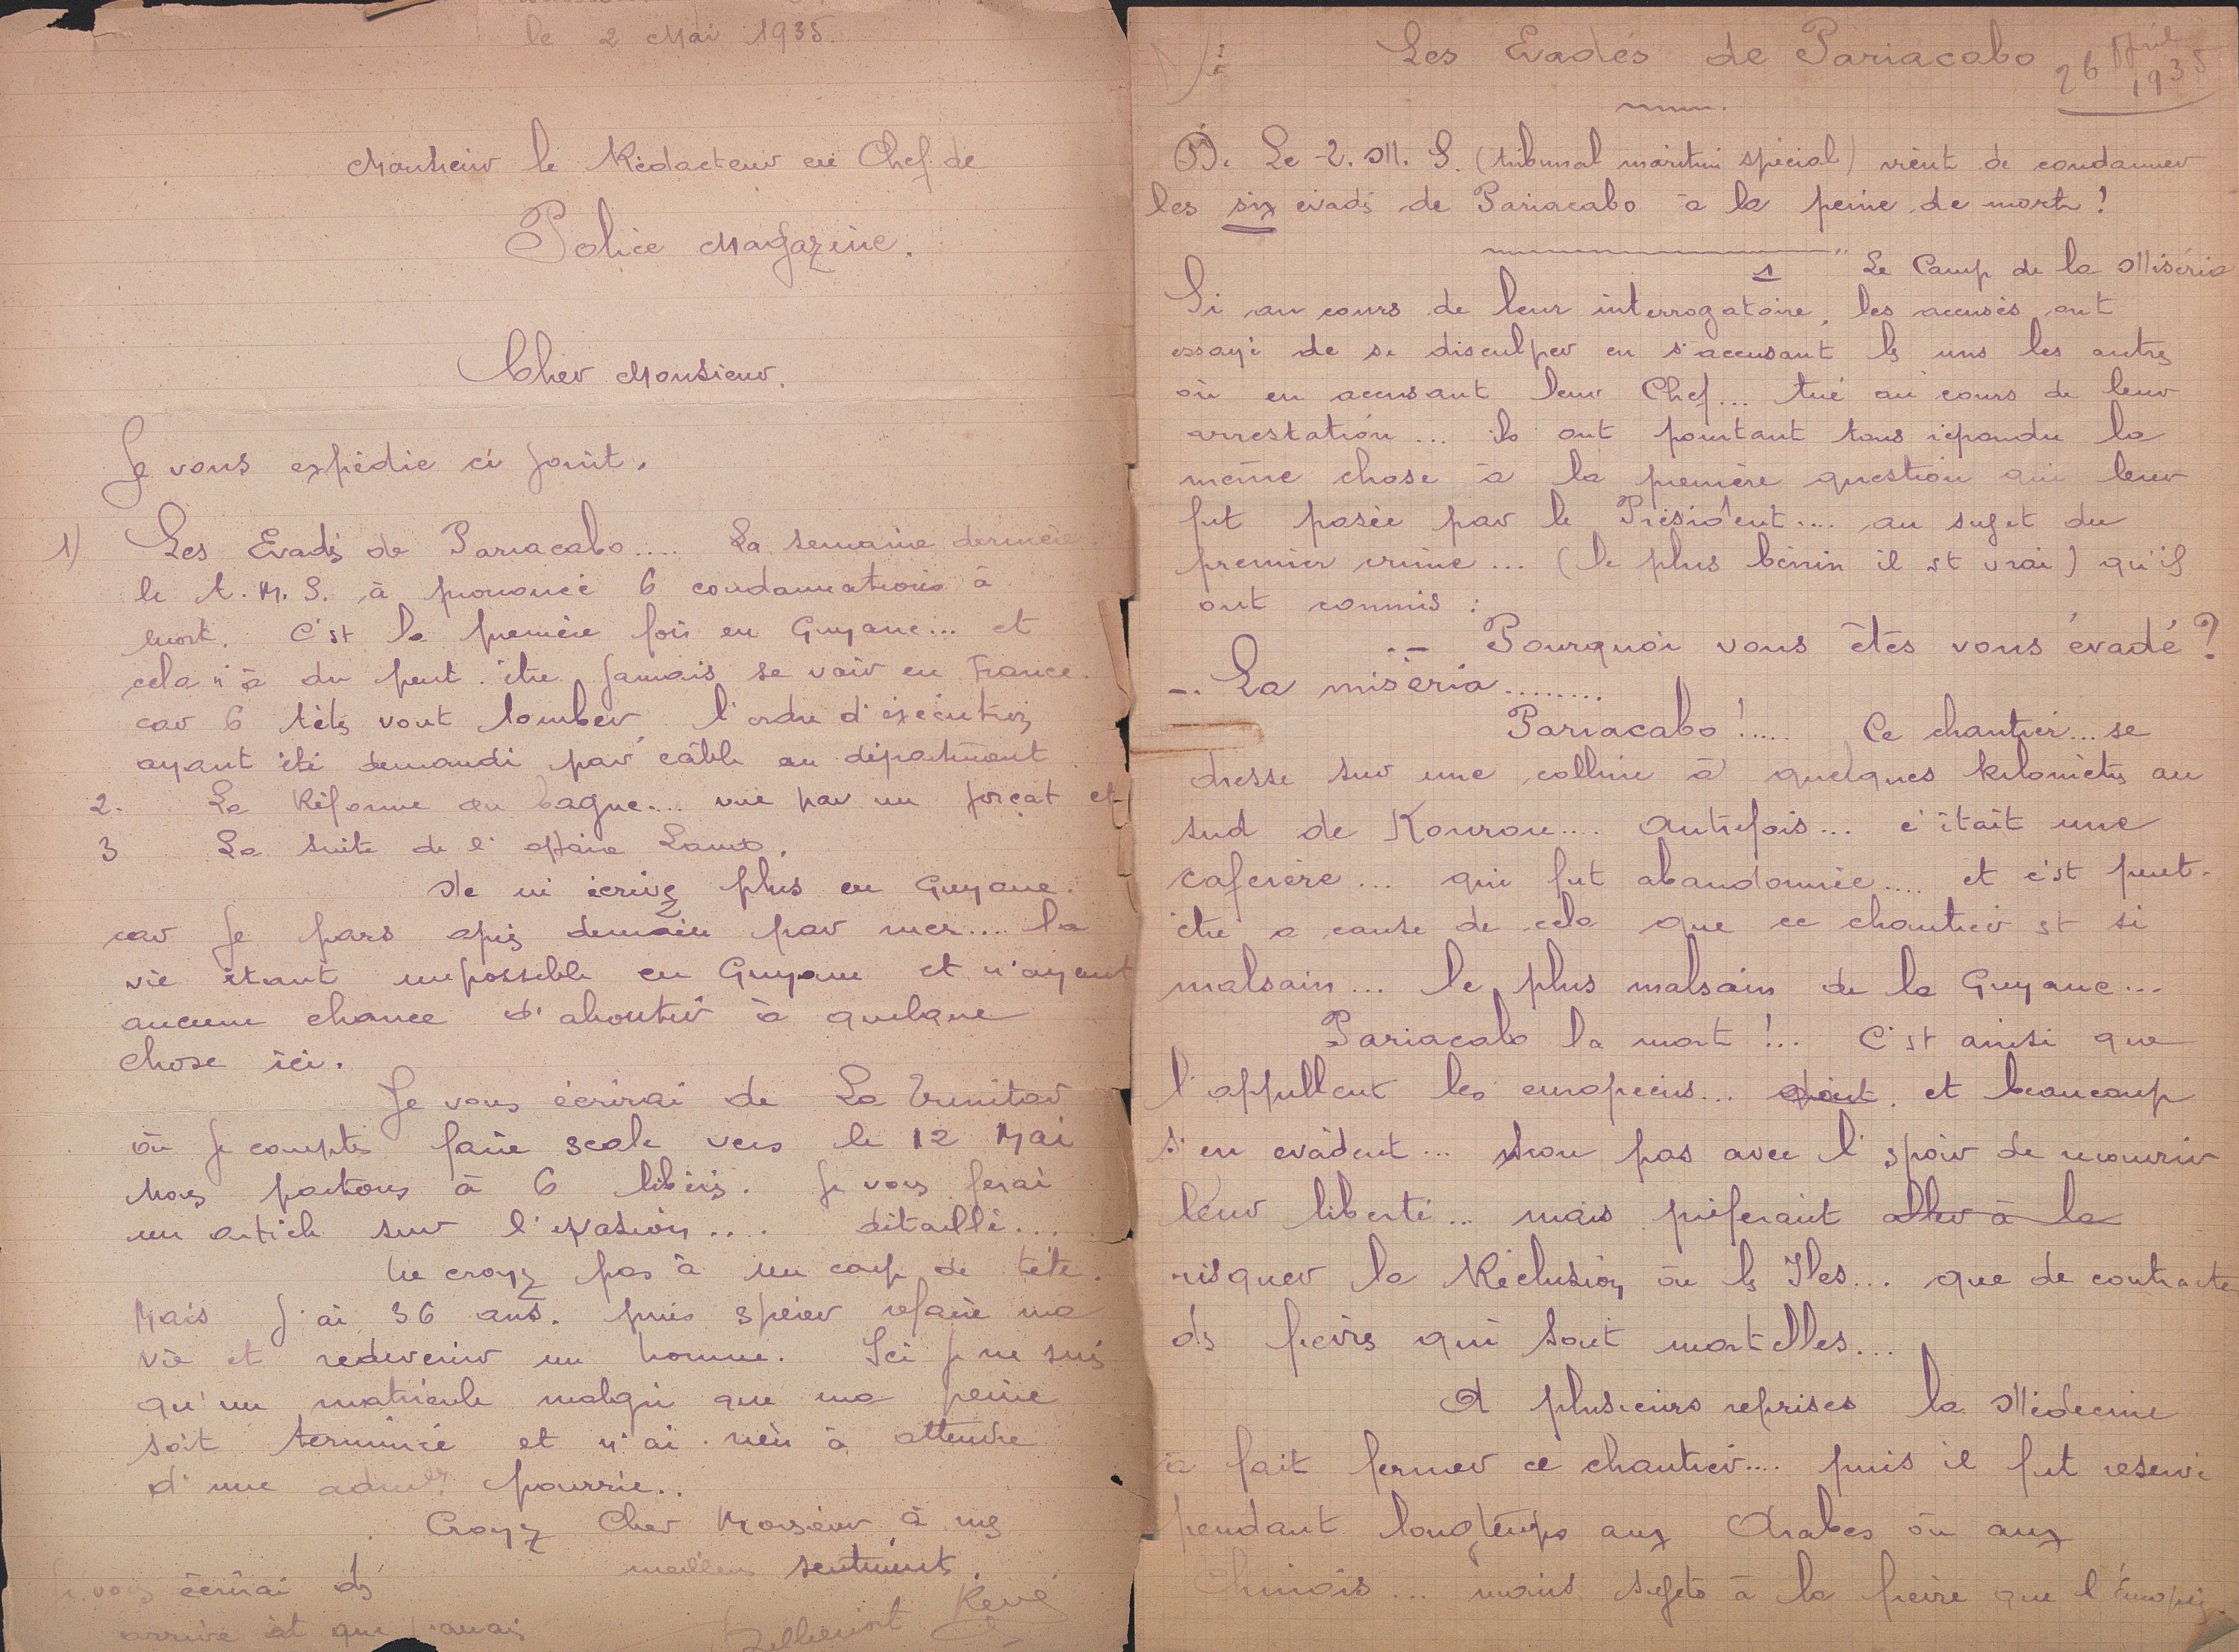 le 2 Mai 1935.
Monsieur le Rédacteur en Chef de
Police Magazine.
Cher Monsieur.
Je vous expédie ci joint.
1) Les Evadés de Pariacabo..... La semaine dernière
le t.M.S. à prononcé 6 condamnations à
mort. C'est la première fois en Guyane... et
cela n'à du peut.être jamais se voir en France.
car 6 têtes vont tomber, l'ordre d'exécution
ayant été demandé par câble au département.
2. La Réforme du bagne.... vue par un forçat et
3 La suite de l'affaire
Ne m'écrivez plus en Guyane.
car je pars après demain par mer.... la
vie étant impossible en Guyane et n'ayant
aucune chance d'aboutir à quelque
chose ici.
Je vous écrirai de La Trinitad
où je comptes faire scale vers le 12 Mai
nous partons à 6 libérés. Je vous ferai
un article sur l'évasion.... détaillé....
Ne croyez pas à un coup de tête.
Mais j'ai 36 ans. puis espérer refaire ma
vie et redevenir un homme. Ici je ne suis
qu'un matricule malgré que ma peine
soit terminée et n'ai rien à attendre
d'une admon pourrie..
Croyez Cher Monsieur à mes
meilleurs sentiments.
Je vous écrirai dès
arrivé et que j'aurais
Belbenoit René
1/: Les Evadés de Pariacabo 26 Avril 1935
Le T.M.S. (tribunal maritim spécial) vient de condamner
les six évadés de Pariacabo à la peine de morts!
1 Le Camp de la Miséria
Si au cours de leur interrogatoire, les accusés ont
essayé de se disculper en s'accusant les uns les autres
où en accusant leur Chef... tué au cours de leur
arrestation... ils ont pourtant tous répondu la
même chose à la première question qui leur
fut posée par le Président.... au sujet du
premier crime... (le plus bénin il est vrai) qu'ils
ont commis :
-- Pourquoi vous êtes vous évadé?
-. La miséria........
Pariacabo!..... Ce chantier... se
dresse sur une colline à quelques kilomètres au
sud de Kourou.... Autrefois... c'était une
caferère... qui fut abandonnée.... et c'est peut-
être a cause de cela que ce chantier est si
malsain... le plus malsain de la Guyane...
Pariacabo la mort!... C'est ainsi que
l'appellent les européens... dont. et beaucoup
s'en évadent... Non pas avec l'espoir de recouvrir
leur liberté... mais préferant aller à la
risquer la Réclusion où les Iles... que de contracter
des fièvres qui sont mortelles...
A plusieurs reprises la Médecine
à fait fermer ce chantier.... puis il fut reservé
pendant longtemps aux Arabes où aux
Chinois... moins sujets à la fièvre que l'Européen.